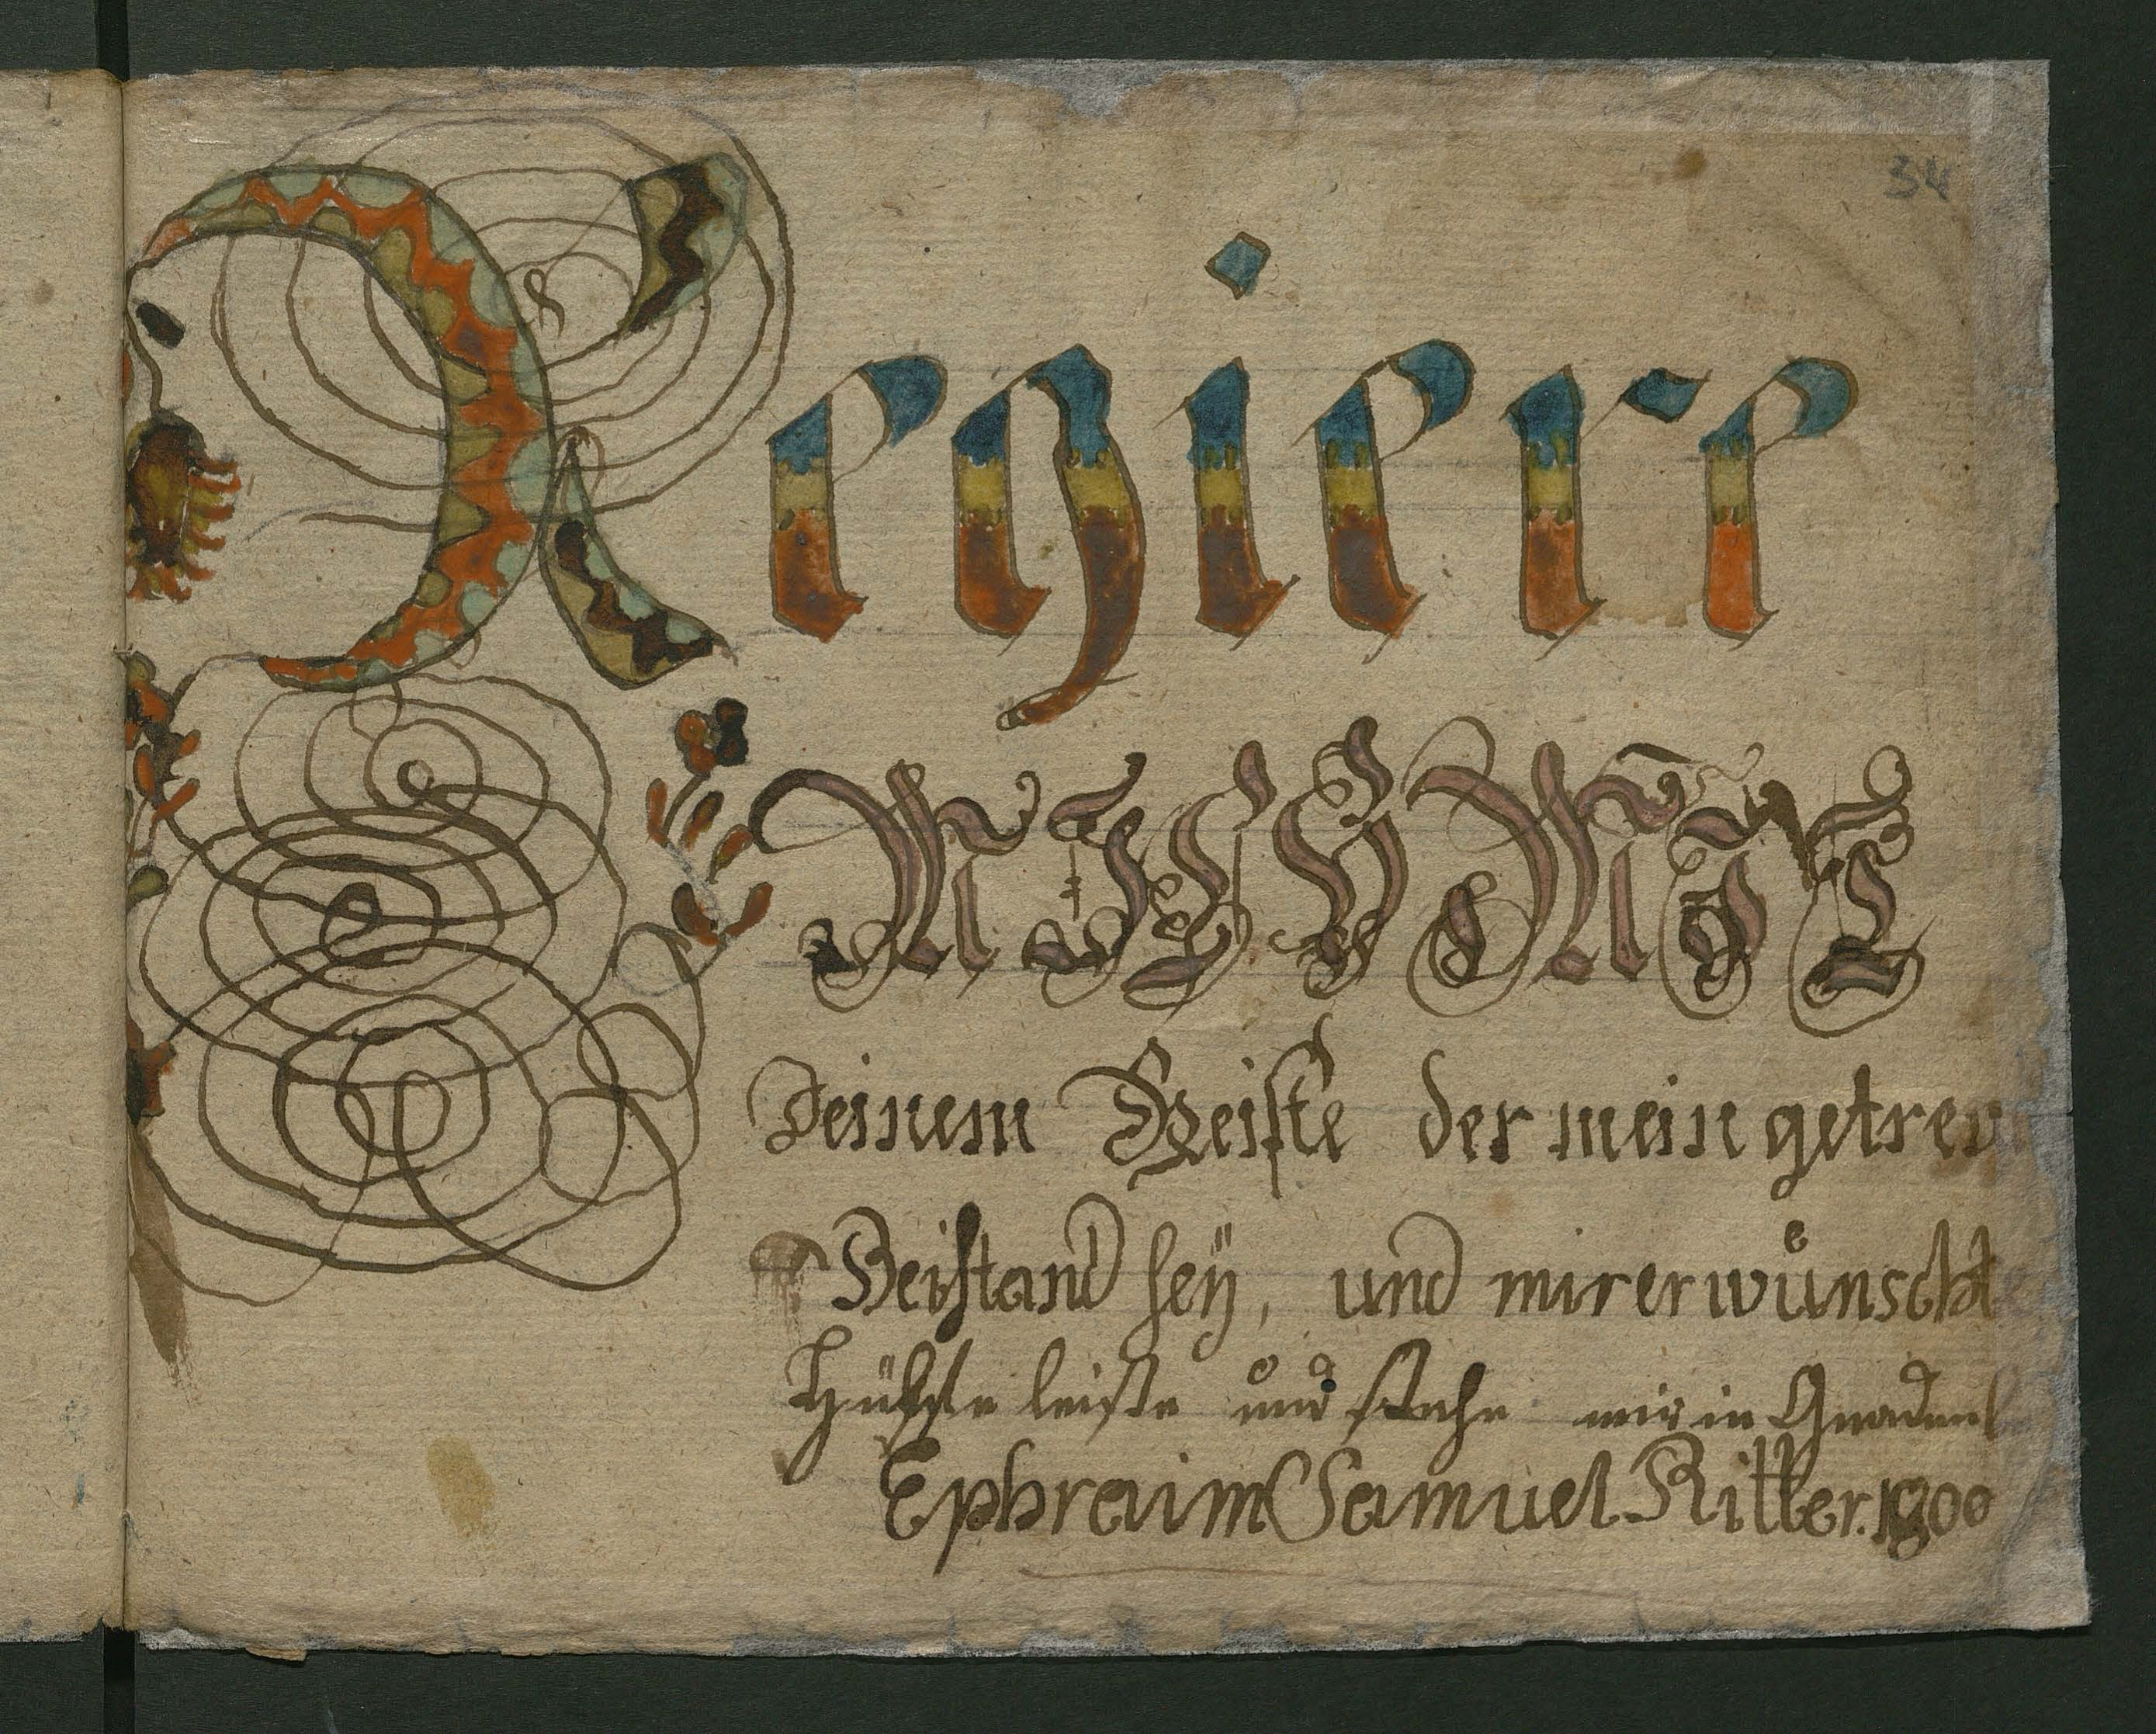 34
Regiere
MICH MIT
Deinem Geiste der mein getreu
Beistand seÿ, und mir erwůnscht
Hülfe leiste und stehe mir in Gnaden
Ephraim Samuel Ritter. 1800